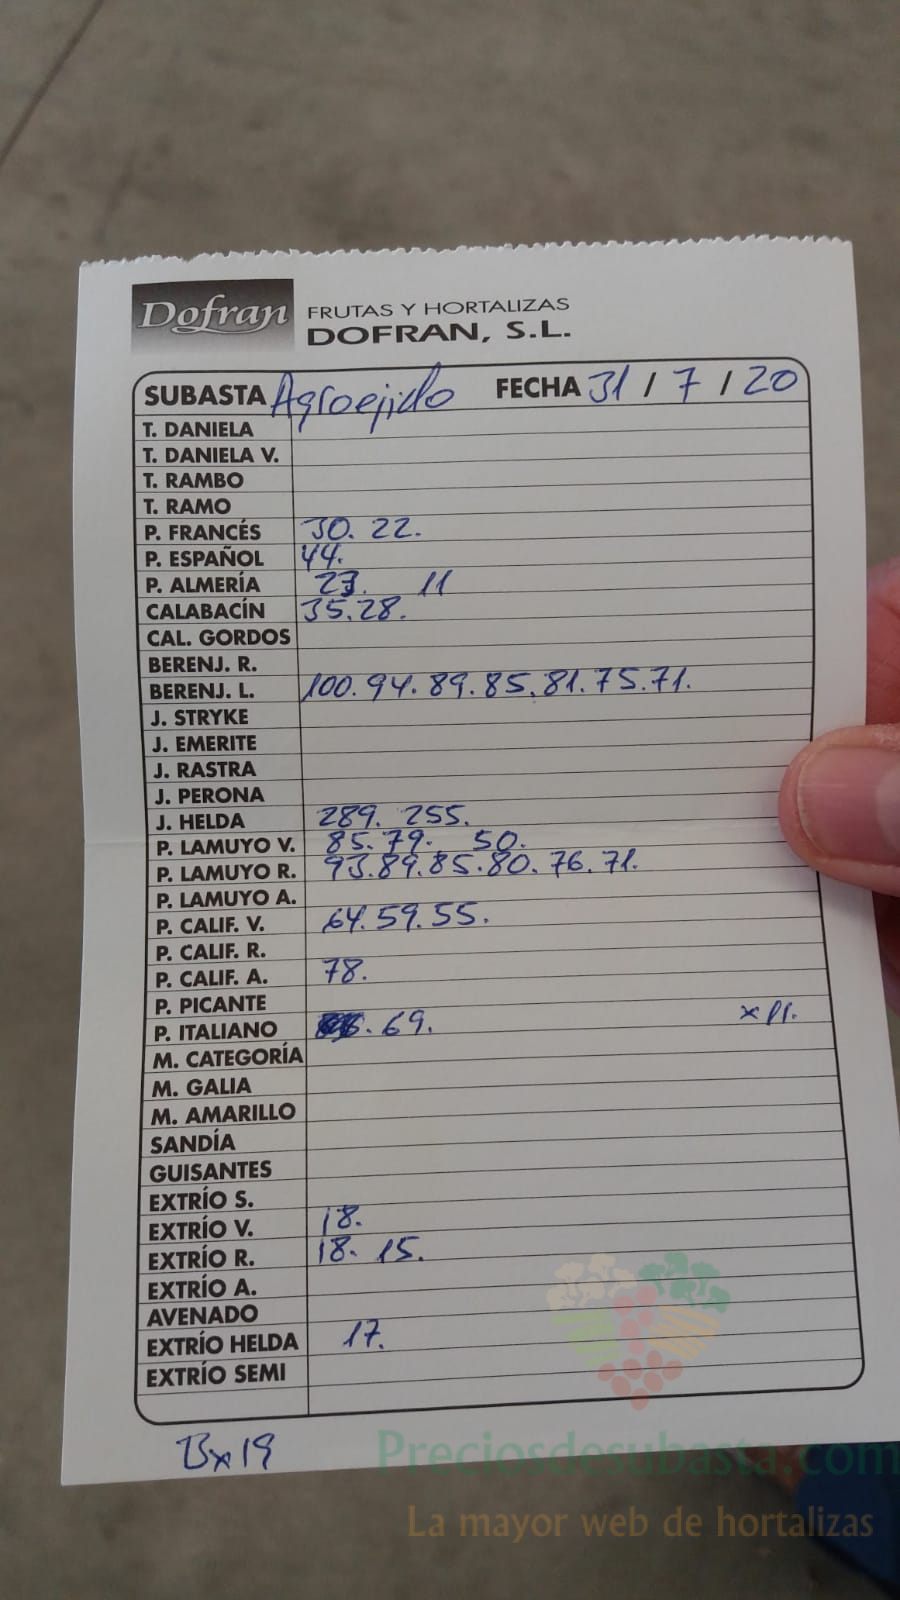 Dofran FRUTAS Y HORTALIZAS
DOFRAN, S.L.
SUBASTA Agroejido FECHA 31 / 7 / 20
T. DANIELA
T. DANIELA V.
T. RAMBO
T. RAMO
P. FRANCÉS 30. 22.
P. ESPAÑOL 44.
P. ALMERÍA 23. 11
CALABACÍN 35.28.
CAL. GORDOS
BERENJ. R.
BERENJ. L. 100.94.89.85.81.75.71.
J. STRYKE
J. EMERITE
J. RASTRA
J. PERONA
J. HELDA 289. 255.
P. LAMUYO V. 85.79. 50.
P. LAMUYO R. 93.89.85.80.76.71.
P. LAMUYO A.
P. CALIF. V. 64.59.55.
P. CALIF. R.
P. CALIF. A. 78.
P. PICANTE
P. ITALIANO . 69.
M. CATEGORÍA
M. GALIA
M. AMARILLO
SANDÍA
GUISANTES
EXTRÍO S.
EXTRÍO V. 18.
EXTRÍO R. 18. 15.
EXTRÍO A.
AVENADO
EXTRÍO HELDA 17.
EXTRÍO SEMI
Bx19
Preciosdesubasta.com
La mayor web de hortalizas